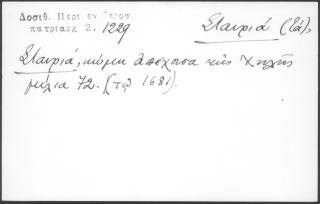 Δοσιθ. Περι εν Ιεροσ.
πατριαρχ 2. 1229
Σταυριά (τά),
Σταυριά, κώμη ἀπέχουσα τῆς Χηλῆς
μίλια 72. (τῷ 1681).